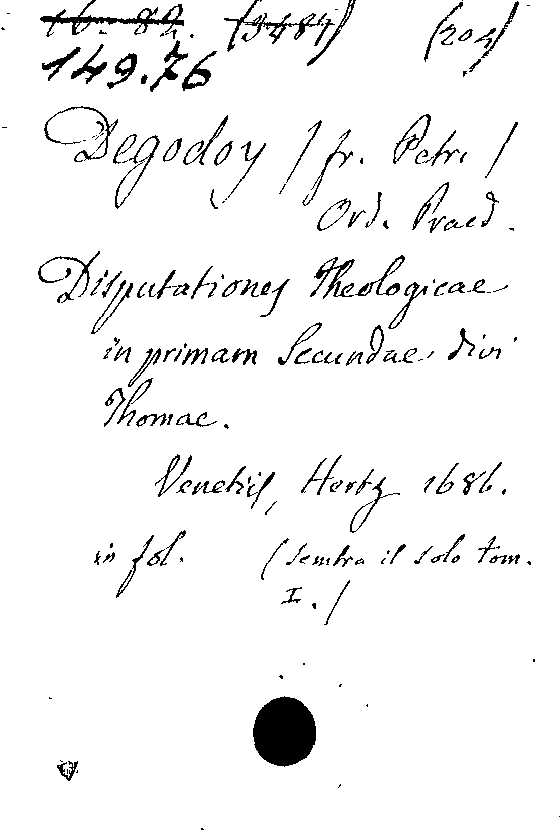 16. 82. (3484) (204)
149.76
Degodoy / fr. Petri /
Ord. Praed.
Disputationes Theologicae
in primam Secundae divi
Thomae.
Venetiis, Hertz 1686.
in fol. (sembra il solo tom.
I. /